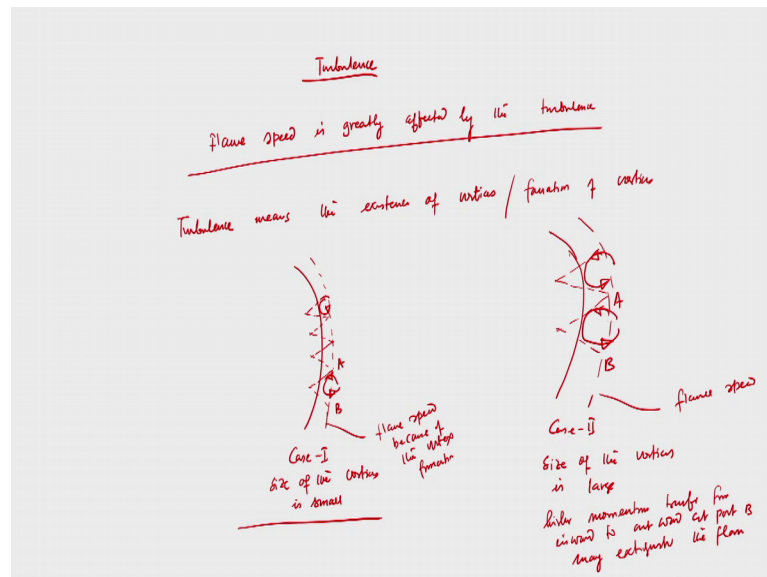 Turbulence
Flame speed is greatly affected by the turbulence
Turbulence means the existence of vortices / formation of vortices
A
B
flame speed
because of
the vortex
formation
Case-I
size of the vortices
is small
A
B
flame speed
Case-II
size of the vortices
is large
higher momentum transfer from
inward to outward at port B
may extinguish the flame